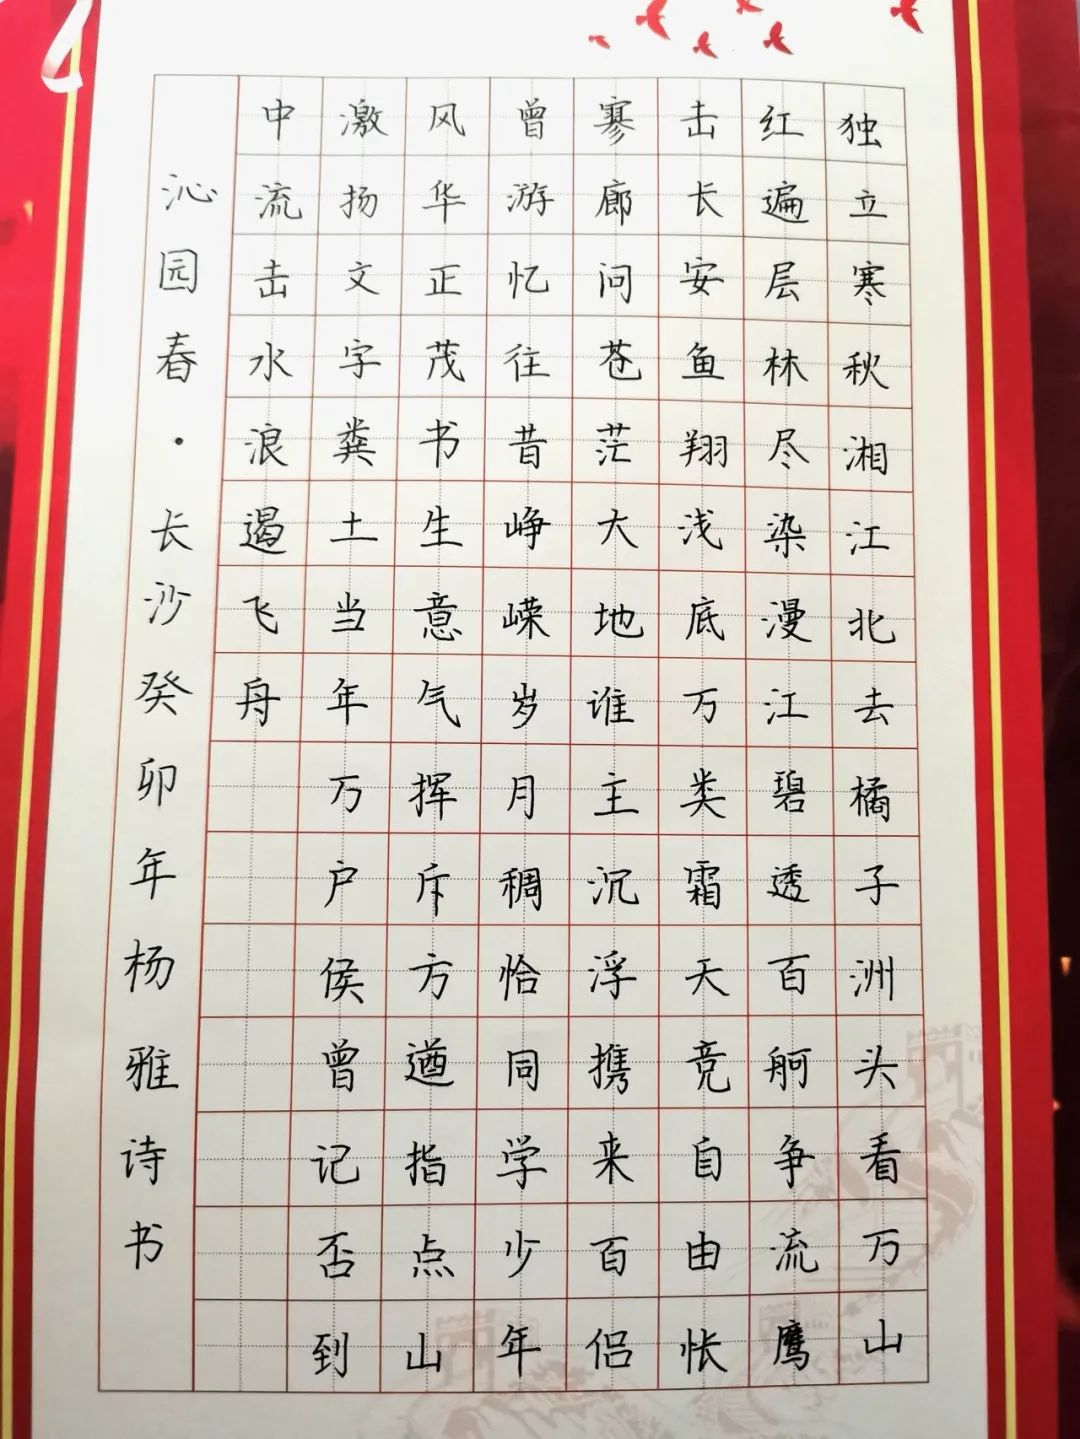 独立寒秋湘江北去橘子洲头看万山
红遍层林尽染漫江碧透百舸争流鹰
击长安鱼翔浅底万类霜天竞自由怅
寥廊问苍茫大地谁主沉浮携来百侣
曾游忆往昔峥嵘岁月稠恰同学少年
风华正茂书生意气挥斥方遒指点山
激扬文字粪土当年万户侯曾记否到
中流击水浪遏飞舟
沁园春·长沙癸卯年杨雅诗书